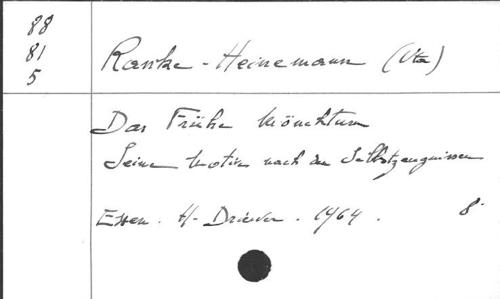 88
81
5
Ranke-Heinemann (Uta)
Das Frühe Mönchtum
Seine Motive nach den Selbstzeugnissen
Essen. H. Driewer. 1964. 8°